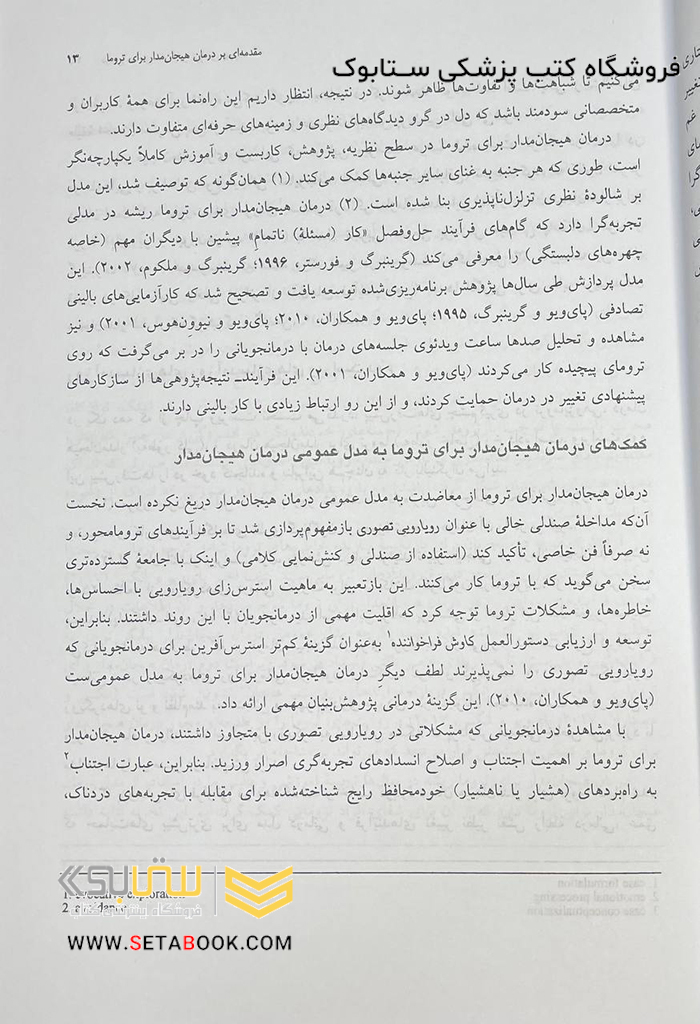 مقدمه‌ای بر درمان هیجان‌مدار برای تروما ۱۳
فروشگاه کتب پزشکی ستابوک
می‌کنیم تا شباهت‌ها و تفاوت‌ها ظاهر شوند. در نتیجه، انتظار داریم این راه‌نما برای همهٔ کاربران و
متخصصانی سودمند باشد که دل در گرو دیدگاه‌های نظری و زمینه‌های حرفه‌ای متفاوت دارند.
درمان هیجان‌مدار برای تروما در سطح نظریه، پژوهش، کاربست و آموزش کاملاً یکپارچه‌نگر
است، طوری که هر جنبه به غنای سایر جنبه‌ها کمک می‌کند. (۱) همان‌گونه که توصیف شد، این مدل
بر شالودهٔ نظری تزلزل‌ناپذیری بنا شده است. (۲) درمان هیجان‌مدار برای تروما ریشه در مدلی
تجربه‌گرا دارد که گام‌های فرآیند حل‌وفصل «کار (مسئلهٔ) ناتمامِ» پیشین با دیگران مهم (خاصه
چهره‌های دلبستگی) را معرفی می‌کند (گرینبرگ و فورستر، ۱۹۹۶؛ گرینبرگ و ملکوم، ۲۰۰۲). این
مدل پردازش طی سال‌ها پژوهش برنامه‌ریزی‌شده توسعه یافت و تصحیح شد که کارآزمایی‌های بالینی
تصادفی (پای‌ویو و گرینبرگ، ۱۹۹۵؛ پای‌ویو و همکاران، ۲۰۱۰؛ پای‌ویو و نیوون‌هوس، ۲۰۰۱) و نیز
مشاهده و تحلیل صدها ساعت ویدئوی جلسه‌های درمان با درمانجویانی را در بر می‌گرفت که روی
ترومای پیچیده کار می‌کردند (پای‌ویو و همکاران، ۲۰۰۱). این فرآیندـ نتیجه‌پژوهی‌ها از سازکارهای
پیشنهادی تغییر در درمان حمایت کردند، و از این رو ارتباط زیادی با کار بالینی دارند.
کمک‌های درمان هیجان‌مدار برای تروما به مدل عمومی درمان هیجان‌مدار
درمان هیجان‌مدار برای تروما از معاضدت به مدل عمومی درمان هیجان‌مدار دریغ نکرده است. نخست
آن‌که مداخلهٔ صندلی خالی با عنوان رویارویی تصوری بازمفهوم‌پردازی شد تا بر فرآیندهای ترومامحور، و
نه صرفاً فن خاصی، تأکید کند (استفاده از صندلی و کنش‌نمایی کلامی) و اینک با جامعهٔ گسترده‌تری
سخن می‌گوید که با تروما کار می‌کنند. این بازتعبیر به ماهیت استرس‌زای رویارویی با احساس‌ها،
خاطره‌ها، و مشکلات تروما توجه کرد که اقلیت مهمی از درمانجویان با این روند داشتند. بنابراین،
توسعه و ارزیابی دستورالعمل کاوش فراخواننده۱ به‌عنوان گزینهٔ کم‌تر استرس‌آفرین برای درمانجویانی که
رویارویی تصوری را نمی‌پذیرند لطف دیگر درمان هیجان‌مدار برای تروما به مدل عمومی‌ست
(پای‌ویو و همکاران، ۲۰۱۰). این گزینهٔ درمانی پژوهش‌بنیان مهمی ارائه داد.
با مشاهدهٔ درمانجویانی که مشکلاتی در رویارویی تصوری با متجاوز داشتند، درمان هیجان‌مدار
برای تروما بر اهمیت اجتناب و اصلاح انسدادهای تجربه‌گری اصرار ورزید. بنابراین، عبارت اجتناب۲
به راه‌بردهای (هشیار یا ناهشیار) خودمحافظ رایج شناخته‌شده برای مقابله با تجربه‌های دردناک،
1. evocative exploration
2. avoidance
ستابوک
فروشگاه اینترنتی کتاب
WWW.SETABOOK.COM